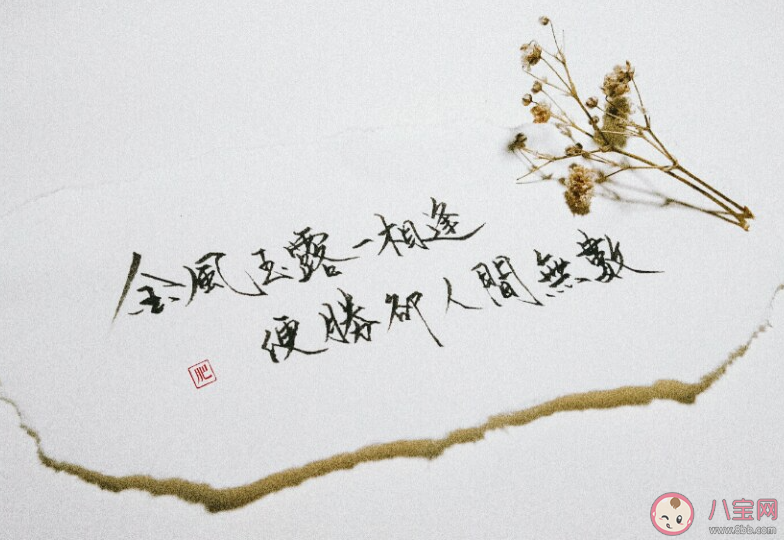 金風玉露一相逢
便勝卻人間無數
八宝网
www.8bb.com